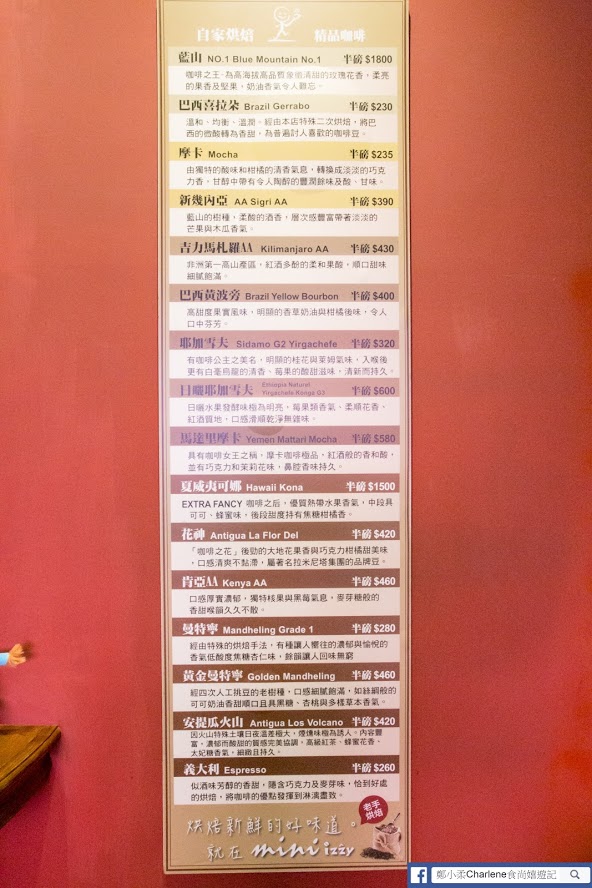 自家烘焙 精品咖啡
藍山 NO.1 Blue Mountain No.1 半磅 $1800
咖啡之王-為高海拔高品質象徵清甜的玫瑰花香，柔亮
的果香及堅果，奶油香氣令人難忘。
巴西喜拉朵 Brazil Gerrabo 半磅 $230
溫和、均衡、溫潤、經由本店特殊二次烘焙，將巴
西的微酸轉為香甜，為普遍討人喜歡的咖啡豆。
摩卡 Mocha 半磅 $235
由獨特的酸味和柑橘的清香氣息，轉換成淡淡的巧克
力香、甘醇中帶有令人陶醉的豐潤餘味及酸、甘味。
新幾內亞 AA Sigri AA 半磅 $390
藍山的樹種，柔酸的酒香，層次感豐富帶著淡淡的
芒果與木瓜香氣。
吉力馬札羅AA Kilimanjaro AA 半磅 $430
非洲第一高山產區，紅酒多酚的柔和果酸，順口甜味
細膩飽滿。
巴西黃波旁 Brazil Yellow Bourbon 半磅 $400
高甜度果實風味，明顯的香草奶油與柑橘後味，令人
口中芬芳。
耶加雪夫 Sidamo G2 Yirgachefe 半磅 $320
有咖啡公主之美名，明顯的桂花與萊姆氣味，入喉後
更有白毫烏龍的清香、莓果的酸甜滋味，清新而持久。
日曬耶加雪夫 Ethiopia Natural Yirgachefe Konga G3 半磅 $600
日曬水果發酵味極為明亮，莓果類香氣、柔順花香、
紅酒質地，口感滑順乾淨無雜味。
馬達里摩卡 Yemen Mattari Mocha 半磅 $580
具有咖啡女王之稱，摩卡咖啡極品，紅酒般的香和酸，
並有巧克力和茉莉花味，鼻腔香味持久。
夏威夷可娜 Hawaii Kona 半磅 $1500
EXTRA FANCY 咖啡之后，優質熱帶水果香氣，中段具
可可、蜂蜜味，後段甜度持有焦糖柑橘香。
花神 Antigua La Flor Del 半磅 $420
「咖啡之花」後勁的大地花果香與巧克力柑橘甜美味
，口感清爽不黏滯，屬著名拉米尼塔集團的品牌豆。
肯亞AA Kenya AA 半磅 $460
口感厚實濃郁，獨特核果與黑莓氣息，麥芽糖般的
香甜喉韻久久不散。
曼特寧 Mandheling Grade 1 半磅 $280
經由特殊的烘焙手法，有種讓人嚮往的濃郁與愉悅的
香氣低酸度焦糖杏仁味，餘韻讓人回味無窮
黃金曼特寧 Golden Mandheling 半磅 $460
經四次人工挑豆的老樹種，口感細膩飽滿，如絲綢般的
可可奶油香甜順口且具黑糖、杏桃與多樣草本香氣。
安提瓜火山 Antigua Los Volcano 半磅 $420
因火山特殊土壤日夜溫差極大，煙燻味極為誘人。內容豐
富、濃郁而酸甜的質感完美協調，高級紅茶、蜂蜜花香、
太妃糖香氣，細緻且持久。
義大利 Espresso 半磅 $260
似酒味芳醇的香甜，隱含巧克力及麥芽味，恰到好處
的烘焙，將咖啡的優點發揮到淋漓盡致。
老手
烘焙
烘焙新鮮的好味道。
就在 mini izzy
鄭小柔Charlene食尚嬉遊記